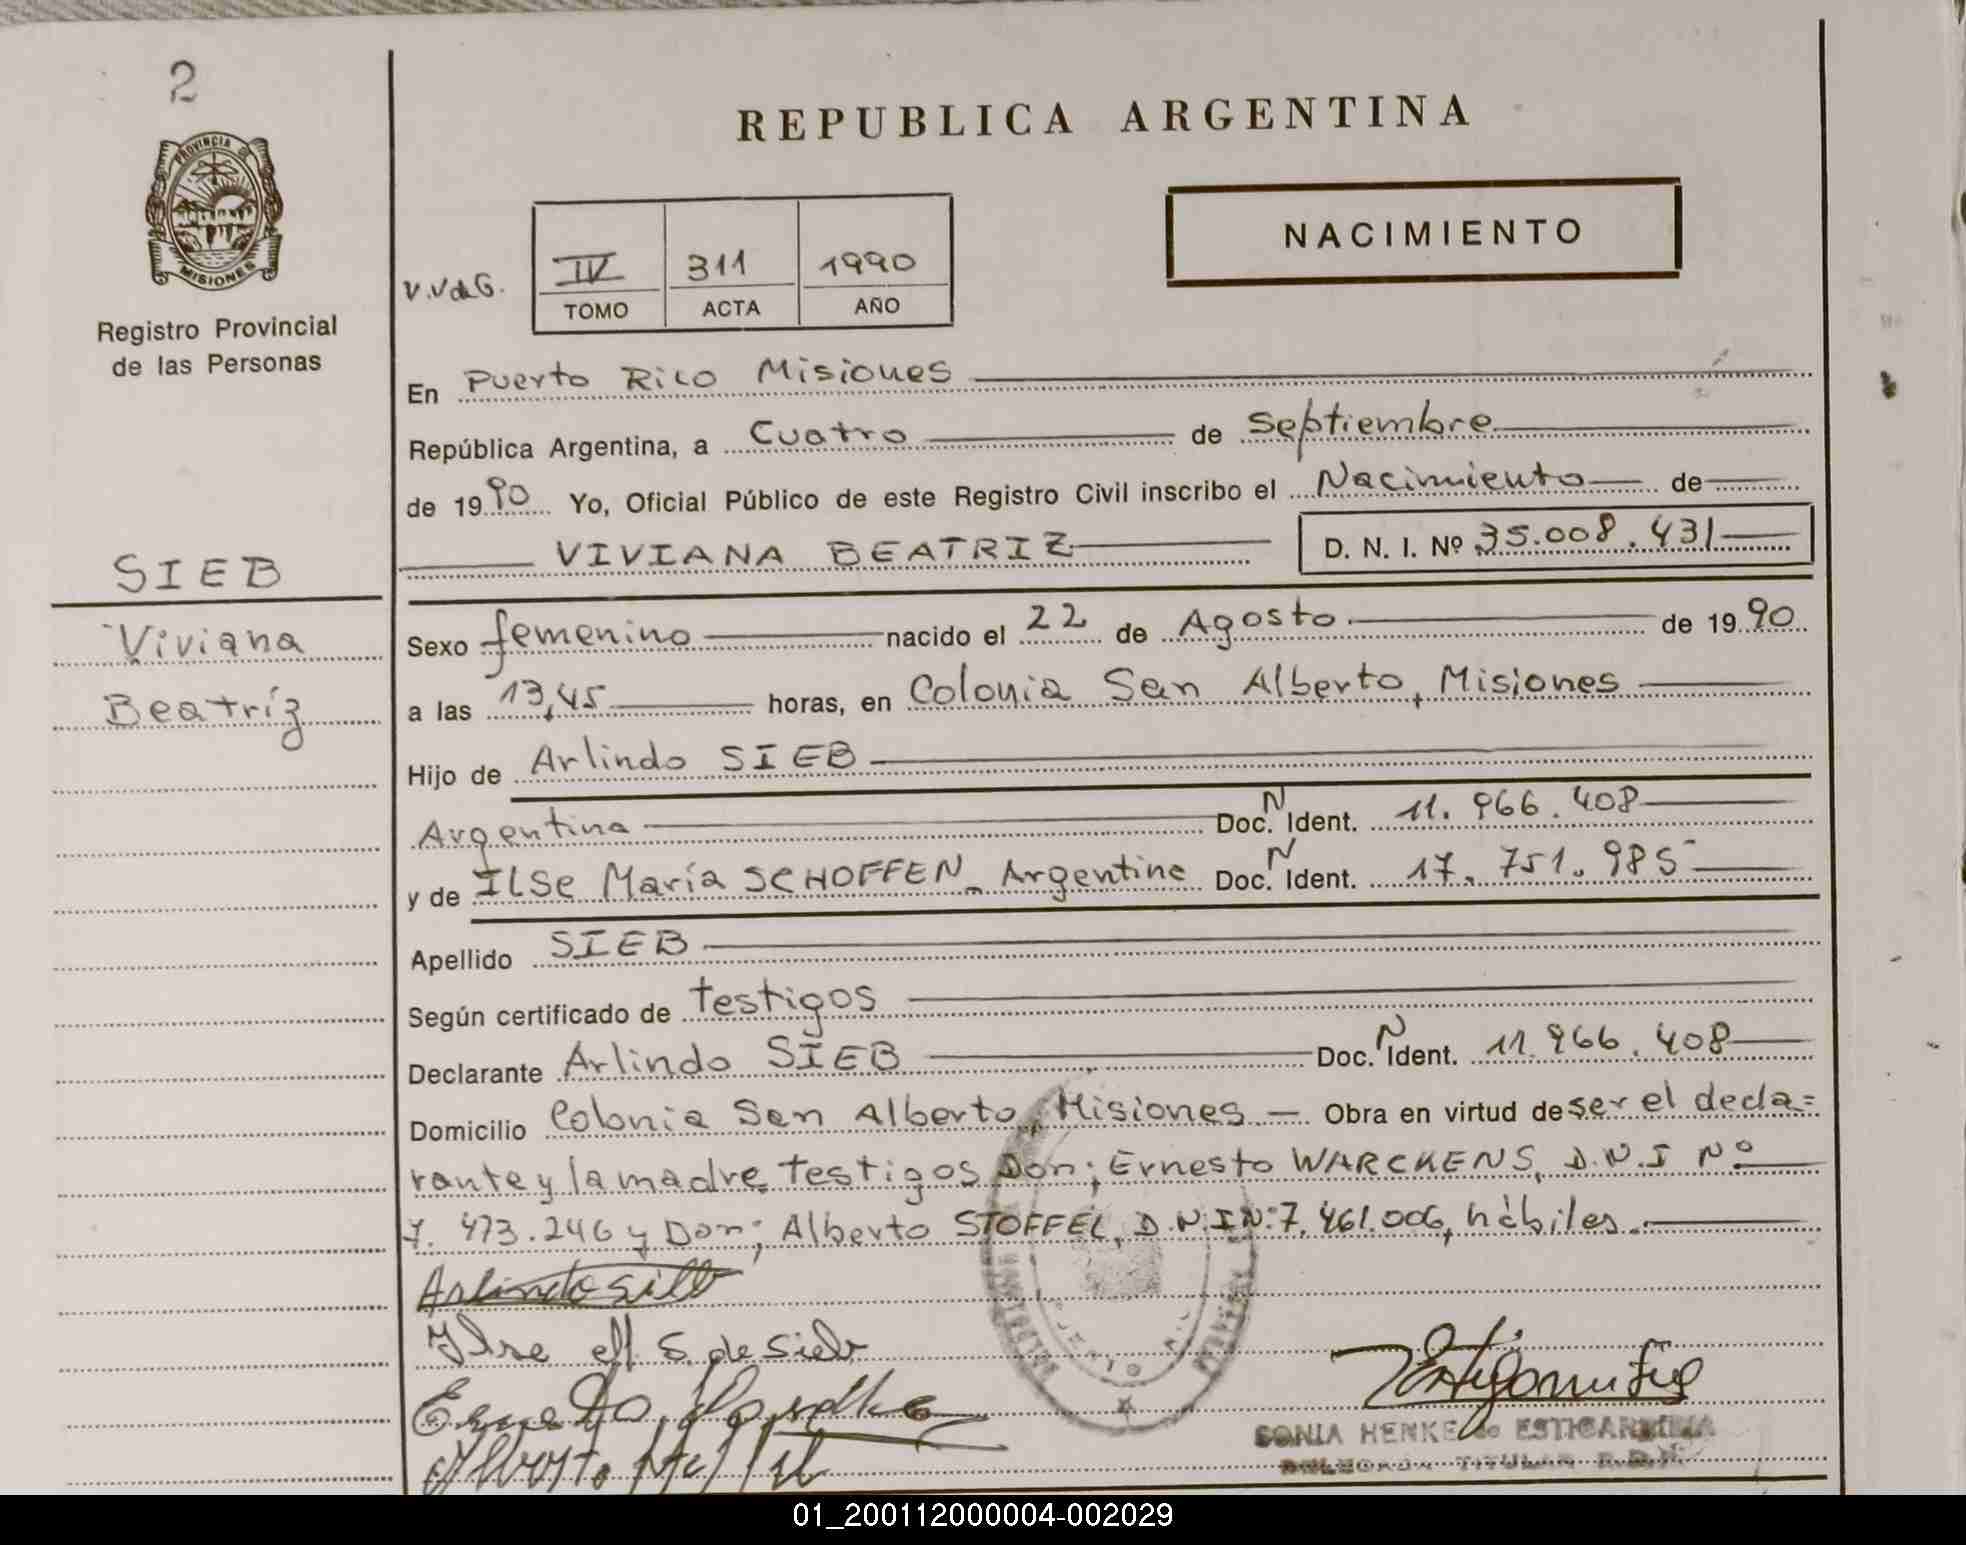 2
PROVINCIA DE
MISIONES
Registro Provincial
de las Personas
SIEB
Viviana
Beatríz
REPUBLICA ARGENTINA
NACIMIENTO
V.V de G.
IV 311 1990
TOMO ACTA AÑO
En Puerto Rico Misiones
República Argentina, a Cuatro de Septiembre
de 1990 Yo, Oficial Público de este Registro Civil inscribo el Nacimiento de
VIVIANA BEATRIZ D. N. I. Nº 35.008.431
Sexo femenino nacido el 22 de Agosto de 1990
a las 13,45 horas, en Colonia San Alberto, Misiones
Hijo de Arlindo SIEB
Argentina Doc. N Ident. 11.966.408
y de Ilse María SCHOFFEN Argentina Doc. N Ident. 17.751.985
Apellido SIEB
Según certificado de testigos
Declarante Arlindo SIEB Doc. N Ident. 11.966.408
Domicilio Colonia San Alberto, Misiones Obra en virtud de ser el decla=
rante y la madre testigos Don; Ernesto WARCKENS, D.N.I Nº
7.473.246 y Don; Alberto STOFFEL, D.N.I N: 7.461.006, hábiles.
Arlindo Sieb
Ilse M S. de Sieb
Ernesto
Alberto
SONIA HENKE de ESTIGARRIBIA
DELEGADA TITULAR R.D.P.
01_200112000004-002029